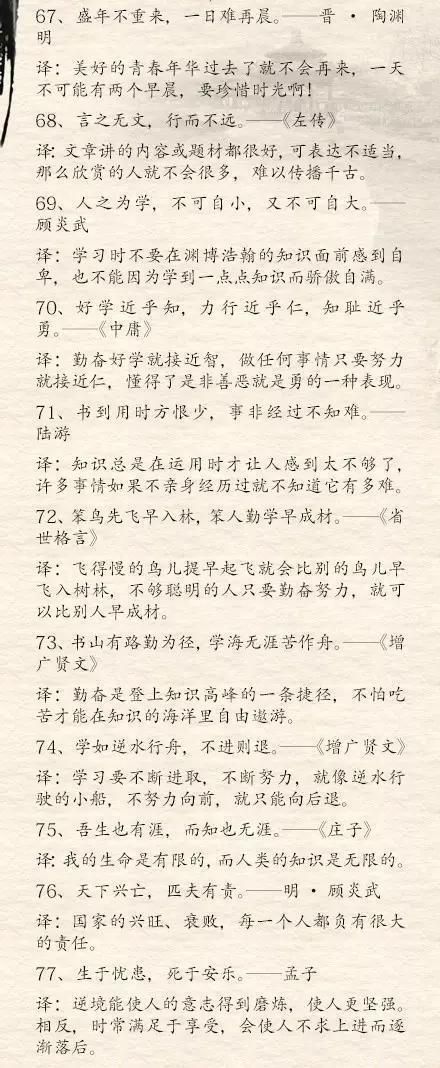 67、盛年不重来，一日难再晨。——晋 · 陶渊
明
译：美好的青春年华过去了就不会再来，一天
不可能有两个早晨，要珍惜时光啊！
68、言之无文，行而不远。——《左传》
译：文章讲的内容或题材都很好，可表达不适当，
那么欣赏的人就不会很多，难以传播千古。
69、人之为学，不可自小，又不可自大。——
顾炎武
译：学习时不要在渊博浩翰的知识面前感到自
卑，也不能因为学到一点点知识而骄傲自满。
70、好学近乎知，力行近乎仁，知耻近乎
勇。——《中庸》
译：勤奋好学就接近智，做任何事情只要努力
就接近仁，懂得了是非善恶就是勇的一种表现。
71、书到用时方恨少，事非经过不知难。——
陆游
译：知识总是在运用时才让人感到太不够了，
许多事情如果不亲身经历过就不知道它有多难。
72、笨鸟先飞早入林，笨人勤学早成材。——《省
世格言》
译：飞得慢的鸟儿提早起飞就会比别的鸟儿早
飞入树林，不够聪明的人只要勤奋努力，就可
以比别人早成材。
73、书山有路勤为径，学海无涯苦作舟。——《增
广贤文》
译：勤奋是登上知识高峰的一条捷径，不怕吃
苦才能在知识的海洋里自由遨游。
74、学如逆水行舟，不进则退。——《增广贤文》
译：学习要不断进取，不断努力，就像逆水行
驶的小船，不努力向前，就只能向后退。
75、吾生也有涯，而知也无涯。——《庄子》
译：我的生命是有限的，而人类的知识是无限的。
76、天下兴亡，匹夫有责。——明 · 顾炎武
译：国家的兴旺、衰败，每一个人都负有很大
的责任。
77、生于忧患，死于安乐。——孟子
译：逆境能使人的意志得到磨炼，使人更坚强。
相反，时常满足于享受，会使人不求上进而逐
渐落后。